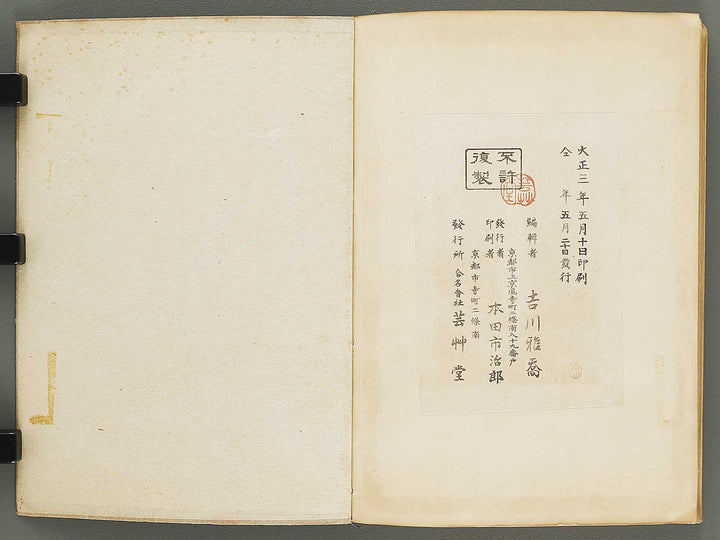 大正三年五月十日印刷
仝年五月二十日發行
不許
復製
編輯者 吉川雅喬
京都市上京區寺町二條南入十九番戸
發行者
印刷者 本田市治郎
京都市寺町二條南
發行所 合名會社 芸艸堂